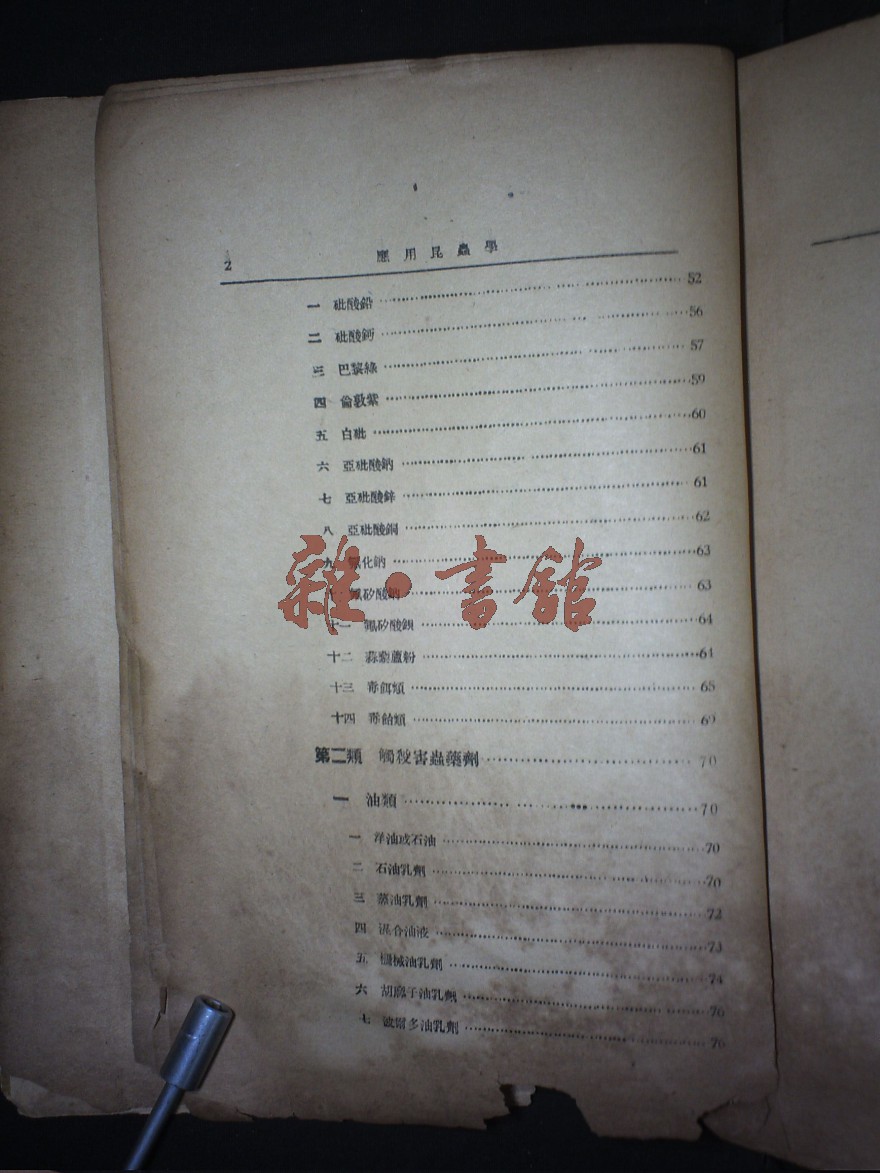 2
應用昆蟲學
一 砒酸鉛 52
二 砒酸鈣 56
三 巴黎綠 57
四 倫敦紫 59
五 白砒 60
六 亞砒酸鈉 61
七 亞砒酸鋅 61
八 亞砒酸銅 62
九 氟化鈉 63
十 氟矽酸鈉 63
十一 氟矽酸鋇 64
十二 蒜藜蘆粉 64
十三 毒餌類 65
十四 毒飴類 69
第二類 觸殺害蟲藥劑 70
一 油類 70
一 洋油或石油 70
二 石油乳劑 70
三 蒸油乳劑 72
四 混合油液 73
五 機械油乳劑 74
六 胡麻子油乳劑 76
七 波爾多油乳劑 76
雜·書館